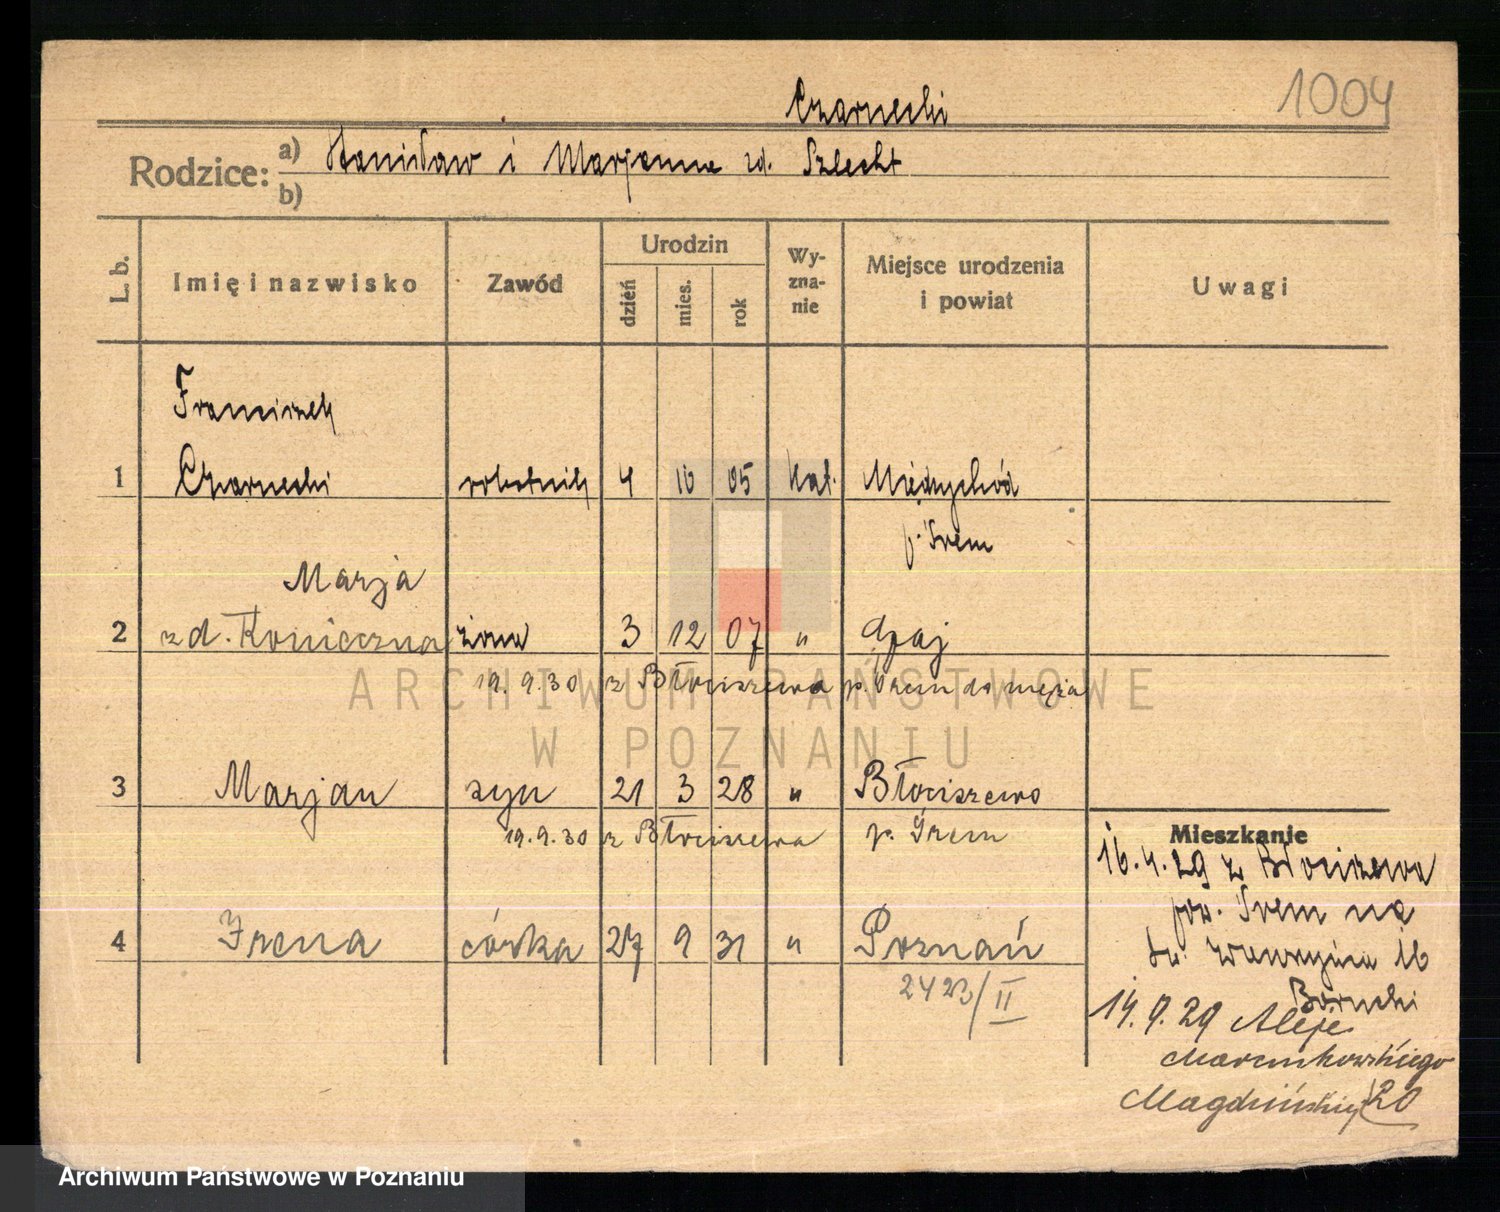 1004
Czarnecki
Rodzice: a) Stanisław i Marjanna zd. Szlecht
b)
L. b. Imię i nazwisko Zawód Urodzin dzień mies. rok Wyznanie Miejsce urodzenia i powiat Uwagi
Franciszek
1 Czarnecki robotnik 4 10 05 kat. Międzychód
p. Śrem
Marja
2 zd. Konieczna żona 3 12 07 "
19.9.30 z Błociszewa p. Śrem do męża
ARCHIWUM PAŃSTWOWE
W POZNANIU
3 Marjan syn 21 3 28 " Błociszewo
19.9.30 z Błociszewa p. Śrem
Mieszkanie
16.4.29 z Błociszewa
pow. Śrem na
4 Irena córka 27 9 31 " Poznań
św. Wawrzyńca 16
2423/II
14.9.29 Aleje
Marcinkowskiego
20
Archiwum Państwowe w Poznaniu